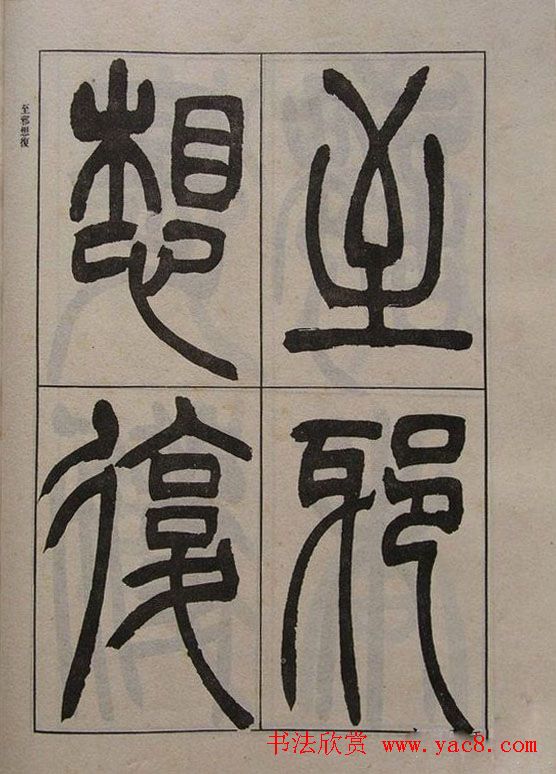 至邪
想復
至邪想復
书法欣赏 www.yac8.com